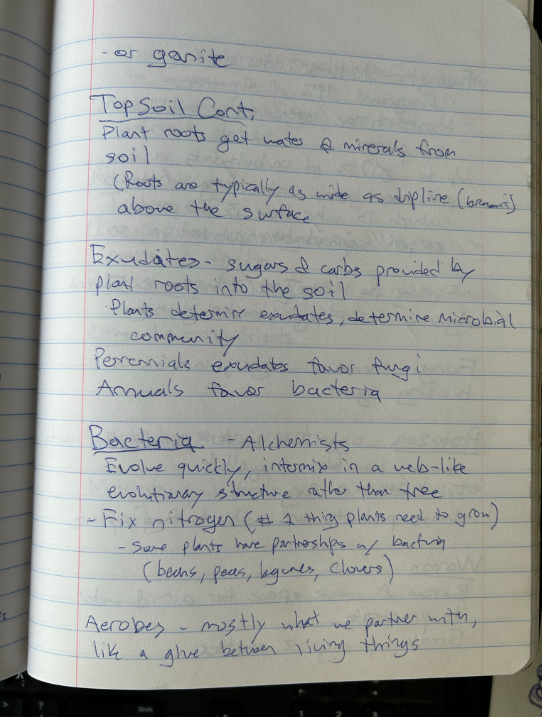 - or ganite
Top Soil Cont.
Plant roots get water & minerals from
soil
(Roots are typically as wide as dripline (branches)
above the surface
Exudates - sugars & carbs provided by
plant roots into the soil
Plants determine exudates, determine microbial
community
Perennials exudates favor fungi
Annuals favor bacteria
Bacteria - Alchemists
Evolve quickly, intermix in a web-like
evolutionary structure rather than tree
- Fix nitrogen (# 1 thing plants need to grow)
- Some plants have partnerships w/ bacteria
(beans, peas, legumes, clovers)
Aerobes - mostly what we partner with,
like a glue between living things
Shift